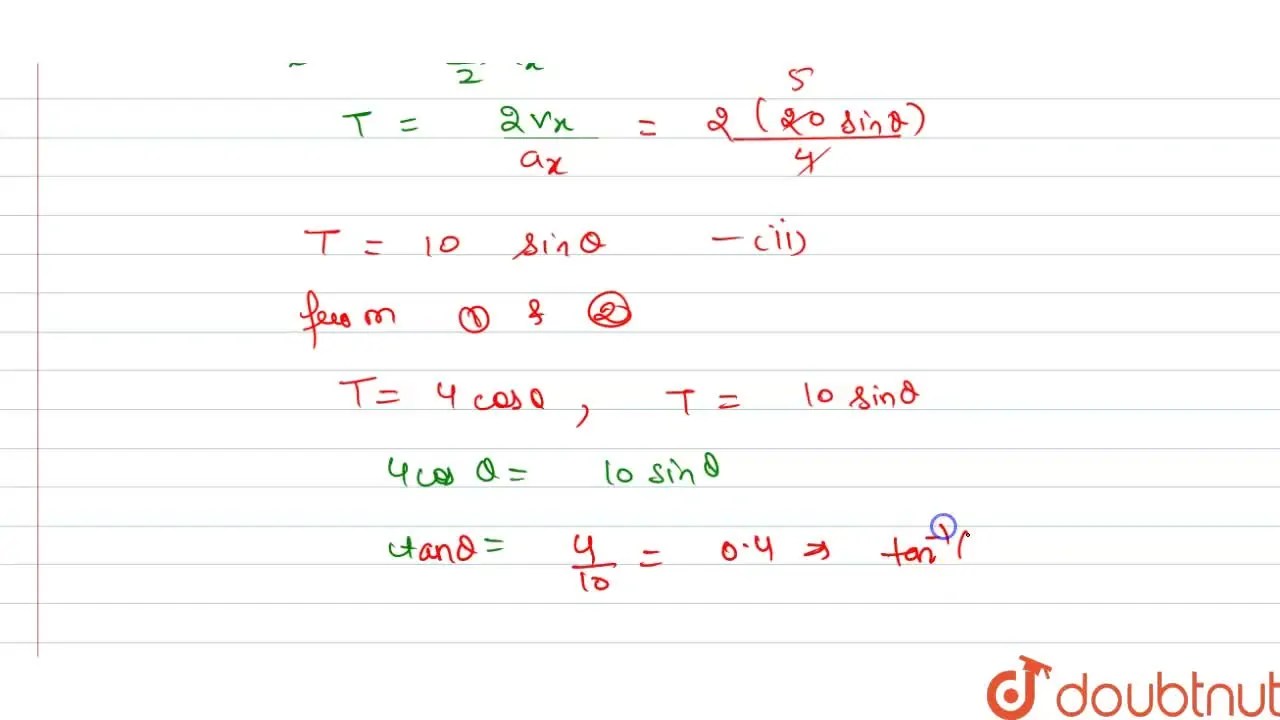 2 x
T = 2vx / ax = 2 (20 sinθ) / 4 5
T = 10 sinθ — (ii)
from ① & ②
T = 4 cosθ , T = 10 sinθ
4 cos θ = 10 sinθ
tanθ = 4/10 = 0.4 ⇒ tan⁻¹(
doubtnut